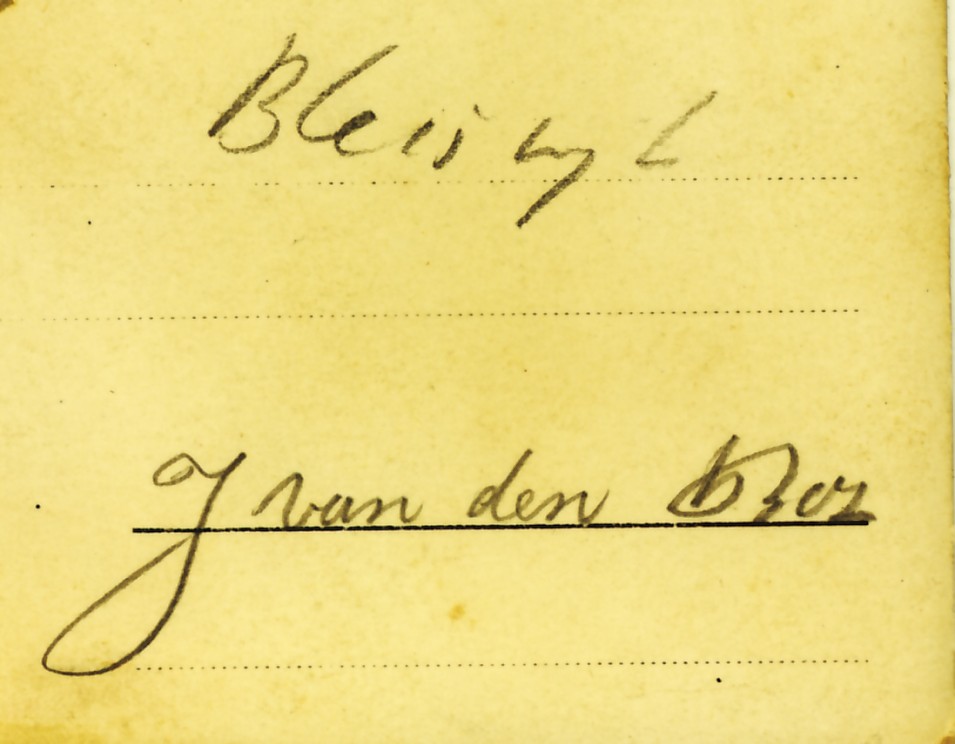 Bleiswyk
J van den Bos